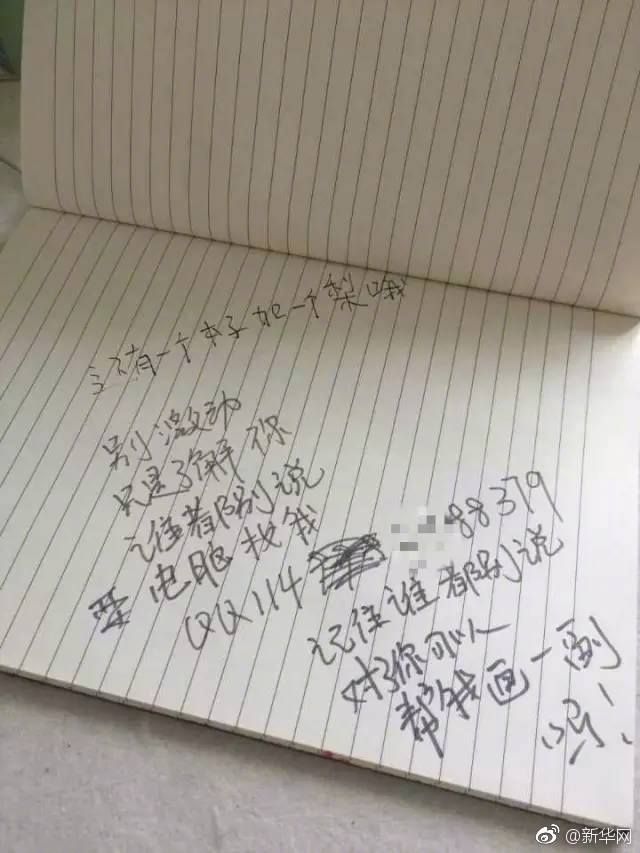 还有一个本子和一个梨哦
别激动
只是了解你
谁都别说
电脑找我
QQ114 88379
记住谁都别说
对了你可以
帮我画一副
吗!
@新华网